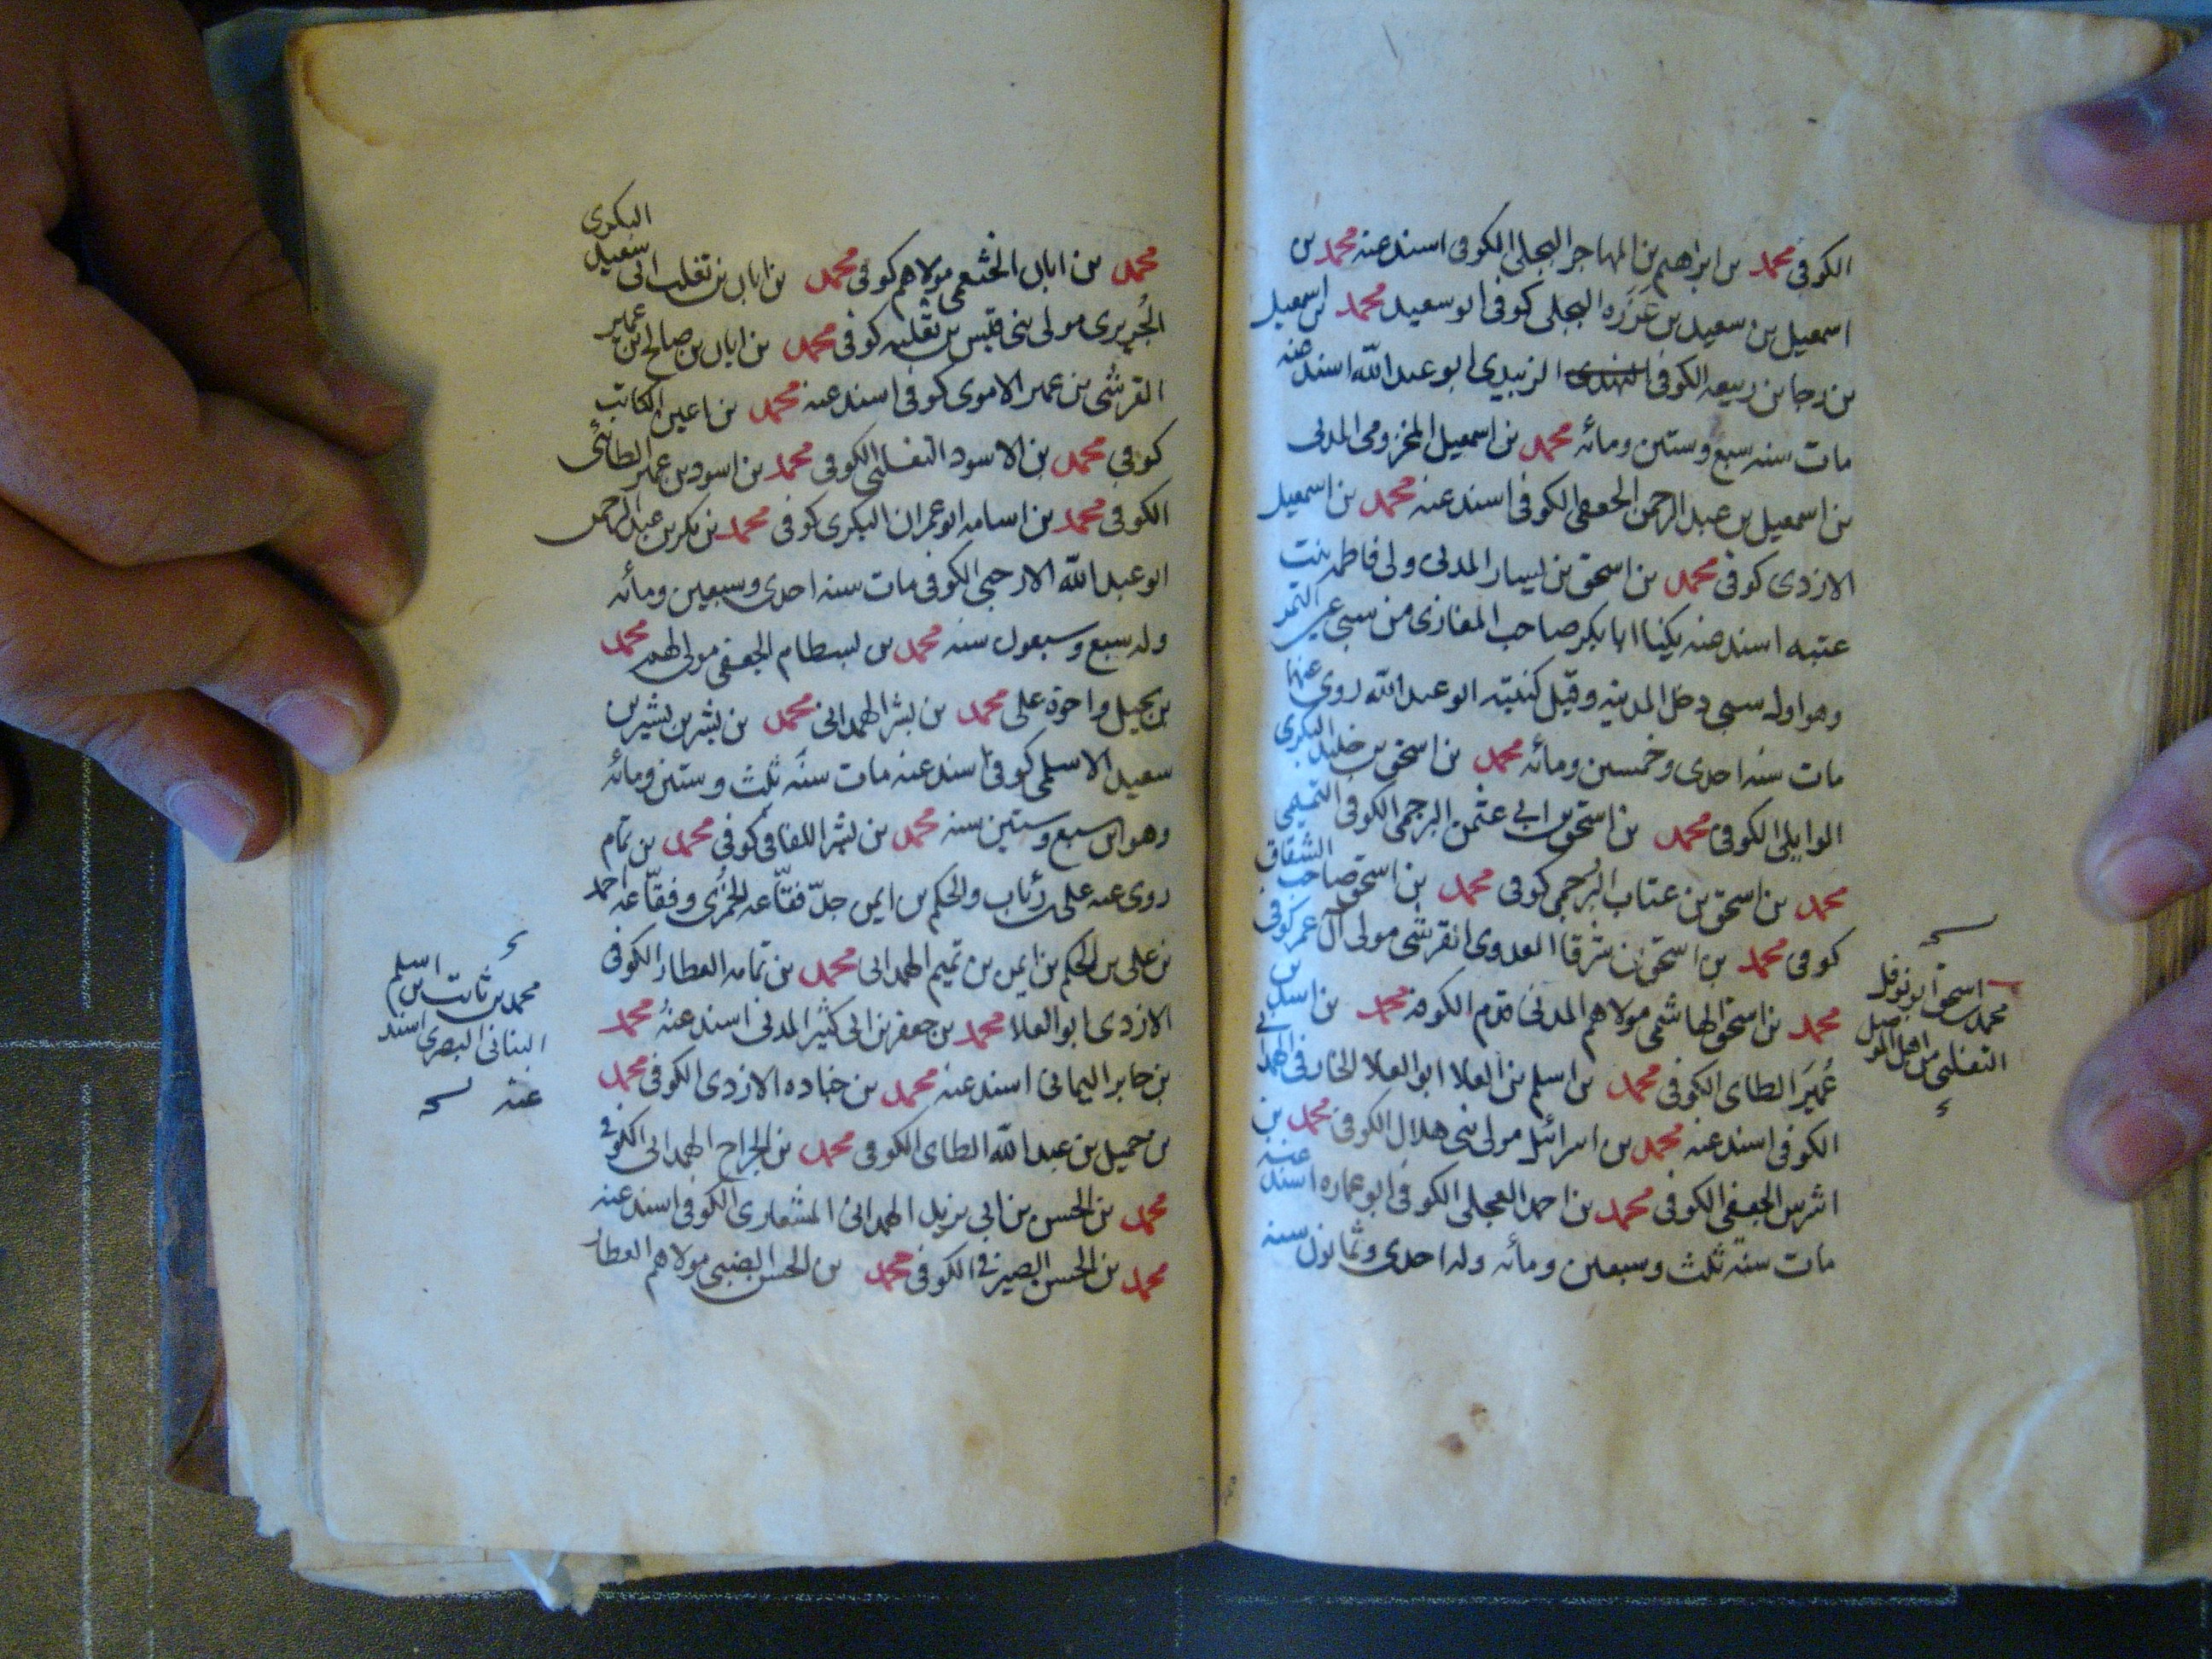 الكوفى محمد بن ابراهيم بن المهاجر البجلى الكوفى اسند عنه محمد بن
اسمعيل بن سعيد بن عزره البجلى كوفى ابو سعيد محمد بن اسمعيل
بن رجا بن ربيعه الكوفى الزبيدى ابو عبد الله اسند عنه
مات سنه سبع وستين ومائه محمد بن اسمعيل المخزومى المدنى
بن اسمعيل بن عبد الرحمن الجعفى الكوفى اسند عنه محمد بن اسمعيل
الازدى كوفى محمد بن اسحق بن يسار المدنى ولى فاطمه بنت
عتبه اسند عنه يكنا ابا بكر صاحب المغازى من سبى عين التمر
وهو اول سبى دخل المدينه وقيل كنيته ابو عبد الله روى عنهما
مات سنه احدى وخمسين ومائه محمد بن اسحق بن خليد البكرى
الوايلى الكوفى محمد بن اسحق بن ابى عثمن البرجمى الكوفى التميمى
محمد بن اسحق بن عتاب البرجمى كوفى محمد بن اسحق صاحب الشقاق
كوفى محمد بن اسحق بن شرقا العدوى القرشى مولى آل عمر كوفى
محمد بن اسحق الهاشمى مولاهم المدنى قدم الكوفه محمد بن اسد بن
عُمير الطاى الكوفى محمد بن اسلم بن العلا ابو العلا الخارفى الهمدانى
الكوفى اسند عنه محمد بن اسرائيل مولى بنى هلال الكوفى محمد بن
اشرس الجعفى الكوفى محمد بن احمد العجلى الكوفى ابو عماره اسند عنه
مات سنه ثلث وسبعين ومائه وله احدى وثمانون سنه
محمد بن اسحق ابو نوفل
التغلبى من اهل الموصل
محمد بن ابان الخثعمى مولاهم كوفى محمد بن ابان بن تغلب ابى سعيد البكرى
الجُريرى مولى بنى قيس بن ثعلبه كوفى محمد بن ابان بن صالح بن عمير
القرشى بن عمير الاموى كوفى اسند عنه محمد بن اعين الكاتب
كوفي محمد بن الاسود التغلبى الكوفى محمد بن اسود بن عمير الطائى
الكوفى محمد بن اسامه ابو عمران البكرى كوفى محمد بن بكر بن عبد الرحمن
ابو عبد الله الارحبى الكوفى مات سنه احدى وسبعين ومائه
وله سبع وسبعون سنه محمد بن بسطام الجعفى مولاهم محمد
بن بجيل واخوة على محمد بن بشر الهمدانى محمد بن بشر بن بشير بن
سعيد الاسلمى كوفى اسند عنه مات سنه ثلث وستين ومائه
وهو ابن سبع وستين سنه محمد بن بشر اللفافى كوفى محمد بن تمام
روى عنه على بن رئاب والحكم بن ايمن جدّ فقّاعه الخمرى وفقّاعه احمد
بن على بن الحكم بن ايمن بن تميم الهمدانى محمد بن ثمامه العطار الكوفى
الازدى ابو العلا محمد بن جعفر بن ابى كثير المدنى اسند عنه محمد
بن جابر اليمانى اسند عنه محمد بن جناده الازدى الكوفى محمد
بن جميل بن عبد الله الطاى الكوفى محمد بن الجراح الهمدانى الكوفى
محمد بن الحسن بن ابى يزيد الهمدانى المشعارى الكوفى اسند عنه
محمد بن الحسن الصيرفى الكوفى محمد بن الحسن الضبى مولاهم العطار
محمد بن ثابت بن اسلم
البنانى البصرى اسند
عنه